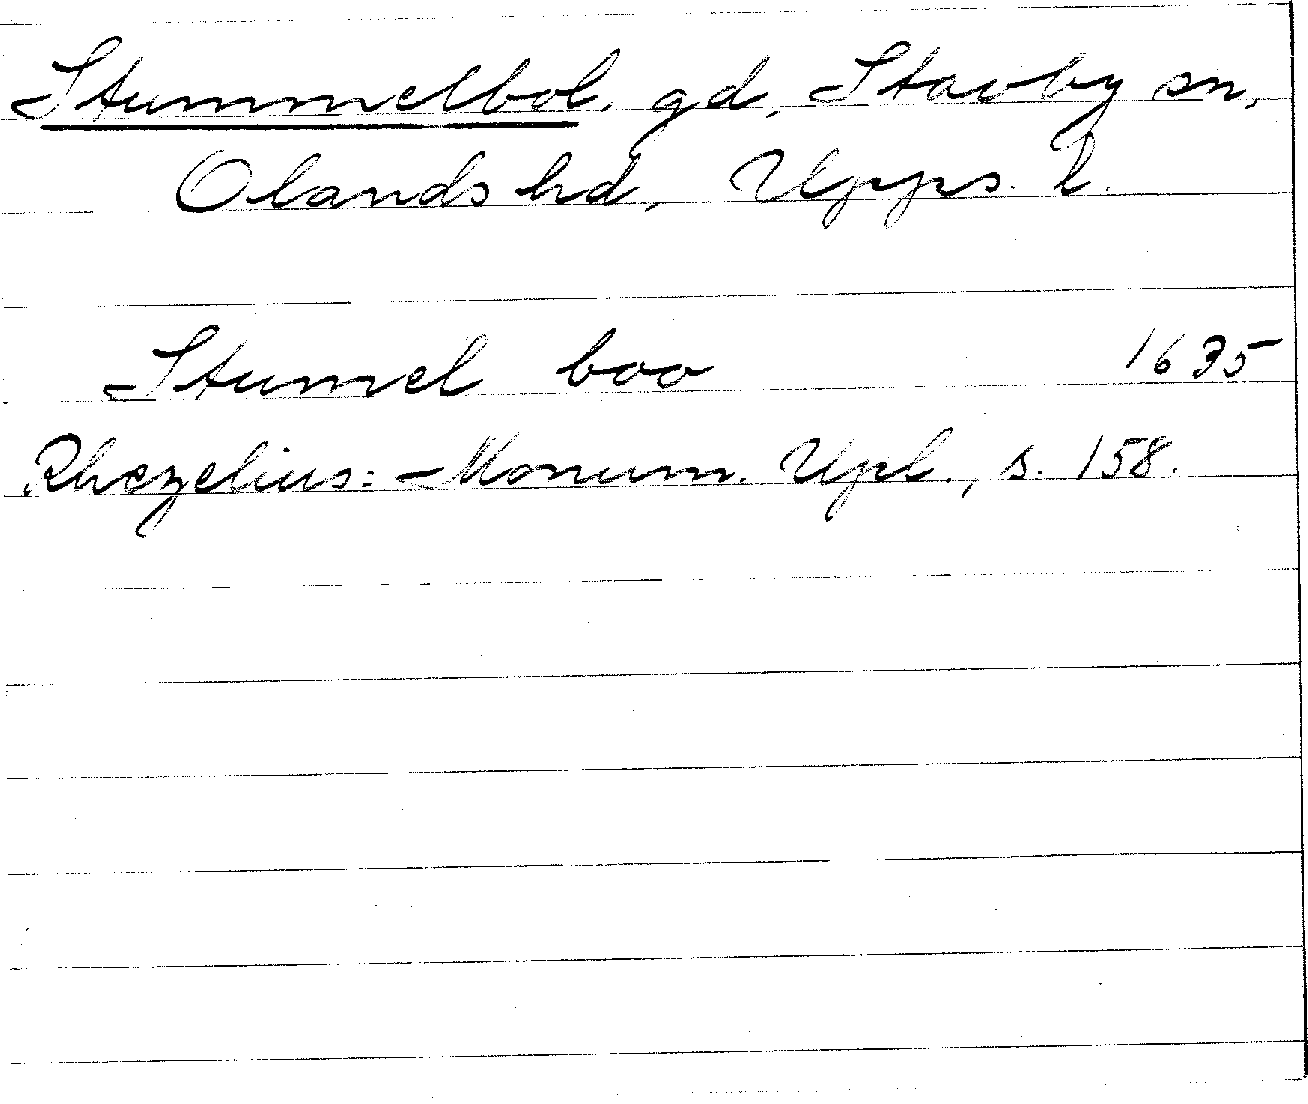 Stummelbol, gd, Stavby sn,
Olands hd, Upps. l.
Stumel boo 1635
Rhezelius: Monum. Upl., s. 158.